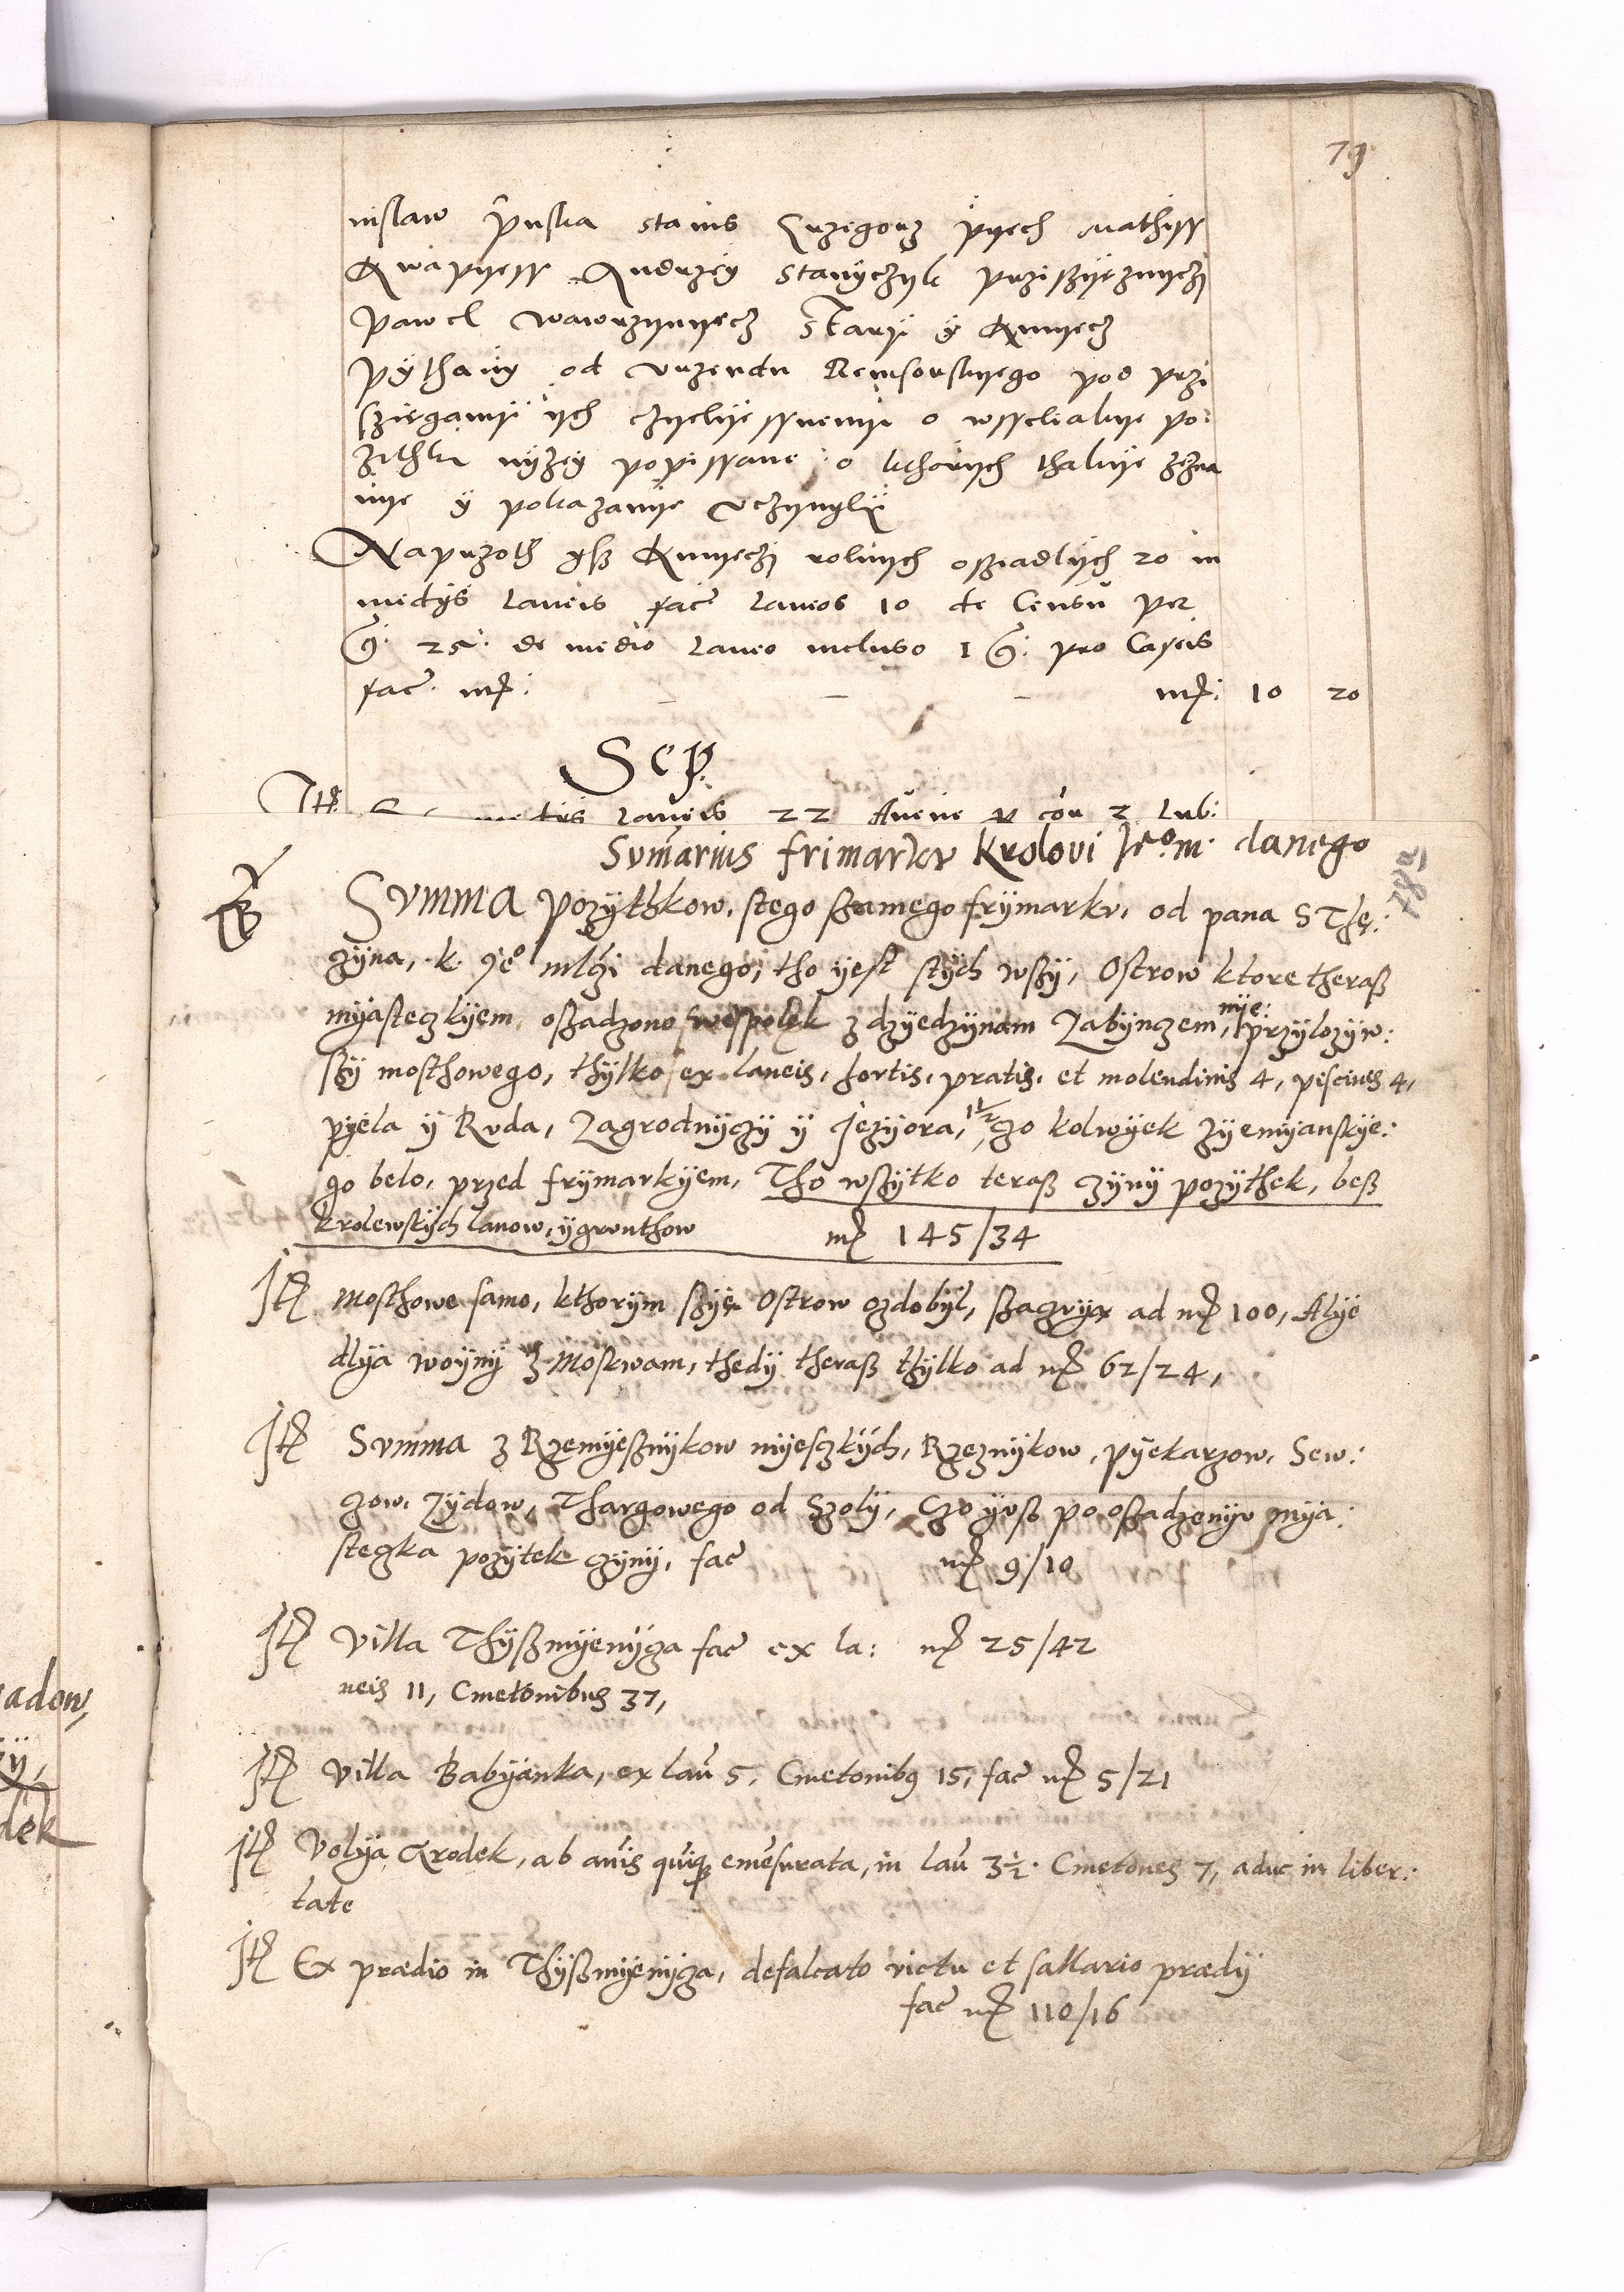 79
nislaw stanis Grzegorz pyech Mathiss
Kwapyess Andrzey Stanyczyk przissyęznyczy
Pawel Wawrzynyecz Stary y Kmyecz
pythany od vrzendu Rewisorskyego pod przi
szięgamy ych czyelyessnemy o wsseliakye po:
zithki nyzey popissane o kthorych thakye zezna
nye y pokazanye vczynyly
Naprzoth yssz Kmyeczy rolnych ossiadlych 20 in
medys laneis facē laneos 10 de Censū per
g: 25: de medio laneo incluso 1 g: pro Caseis
facē mr: mr: 10 20
Sep
Itē medys laneis 22 Auene
Sumarius frimarkv krolovi Ieº m. danego
78a
SVMMA pozythkow, stego ssamego frymarkv, od pana SThę:
zyna, k. Jeº mlczi danego, tho yest stych wssy, Ostrow ktore therass
myasteczkyem ossadzono swespolek z dzyedzynam Zabynczem, nye: przylozyw:
ssy mosthowego, thylko ex laneis, hortis, pratis, et molendinis 4, piscines 4,
pyela y Rvda, Zagrodnyczy y Jezyora, 1½ czo kolwyek zyemyanskye:
go belo, przed frymarkyem, Tho wssytko terass czyny pozythek, bess
krolewskych lanow, y grvnthow mr 145/34
Itē Mosthowe samo, kthorym ssyę Ostrow ozdobyl, ssaczvyą ad mr 100, Alye
dlya woyny z Moskwam, thedy therass thylko ad mr 62/24,
Itē Svmma z Rzemyessnykow myesczkych, Rzeznykow, pyekarzow, Sew:
czow, Zydow, Thargowego od Szoly, Czo yvss po ossadzenyv mya:
steczka pozytek czyny, facē mr 9/10
Itē Villa Thyssmyenycza facē ex la: mr 25/42
neis 11, Cmetonibus 37,
Itē Villa Babyanka, ex lanē 5, Cmetonibq 15, facē mr 5/21
Itē Volya Grodek, ab anīs quīqꝫ emēsurata, in lanē 3½. Cmetones 7, aduc in liber:
tate
Itē Ex prædio in Thyssmyenycza, defalcato victu et sallario prædy
facē mr 110/16
adow,
dek